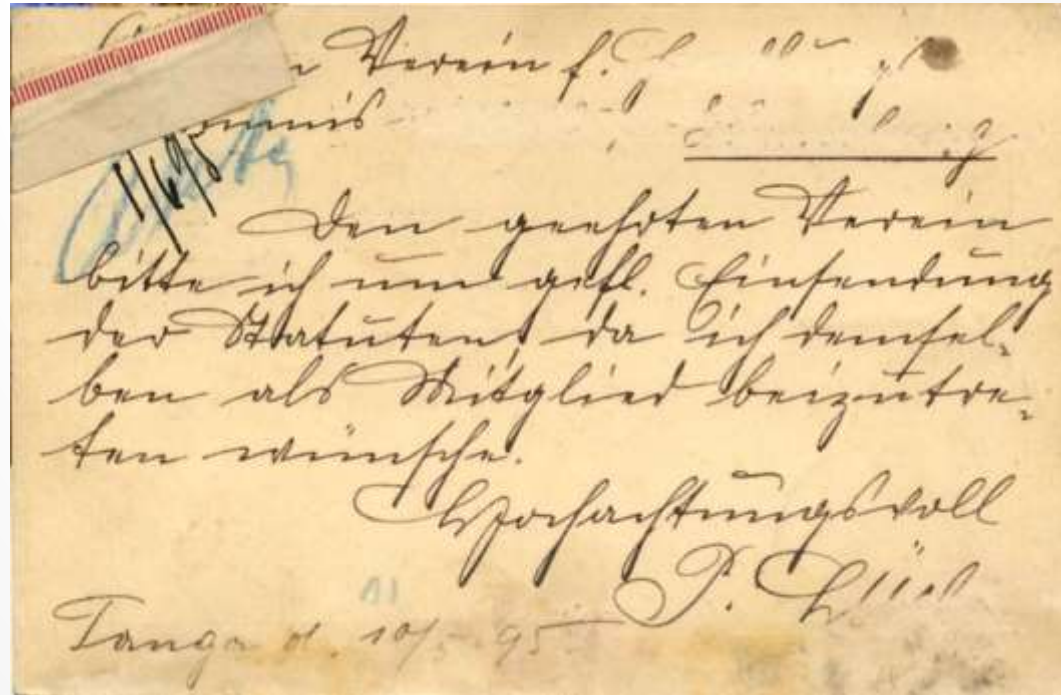 Verein f.
1/6 95
Den geehrten Verein
bitte ich um gefl. Einsendung
der Statuten, da ich demsel-
ben als Mitglied beizutre-
ten wünsche.
Hochachtungsvoll
P.
Tanga d. 10/5 95